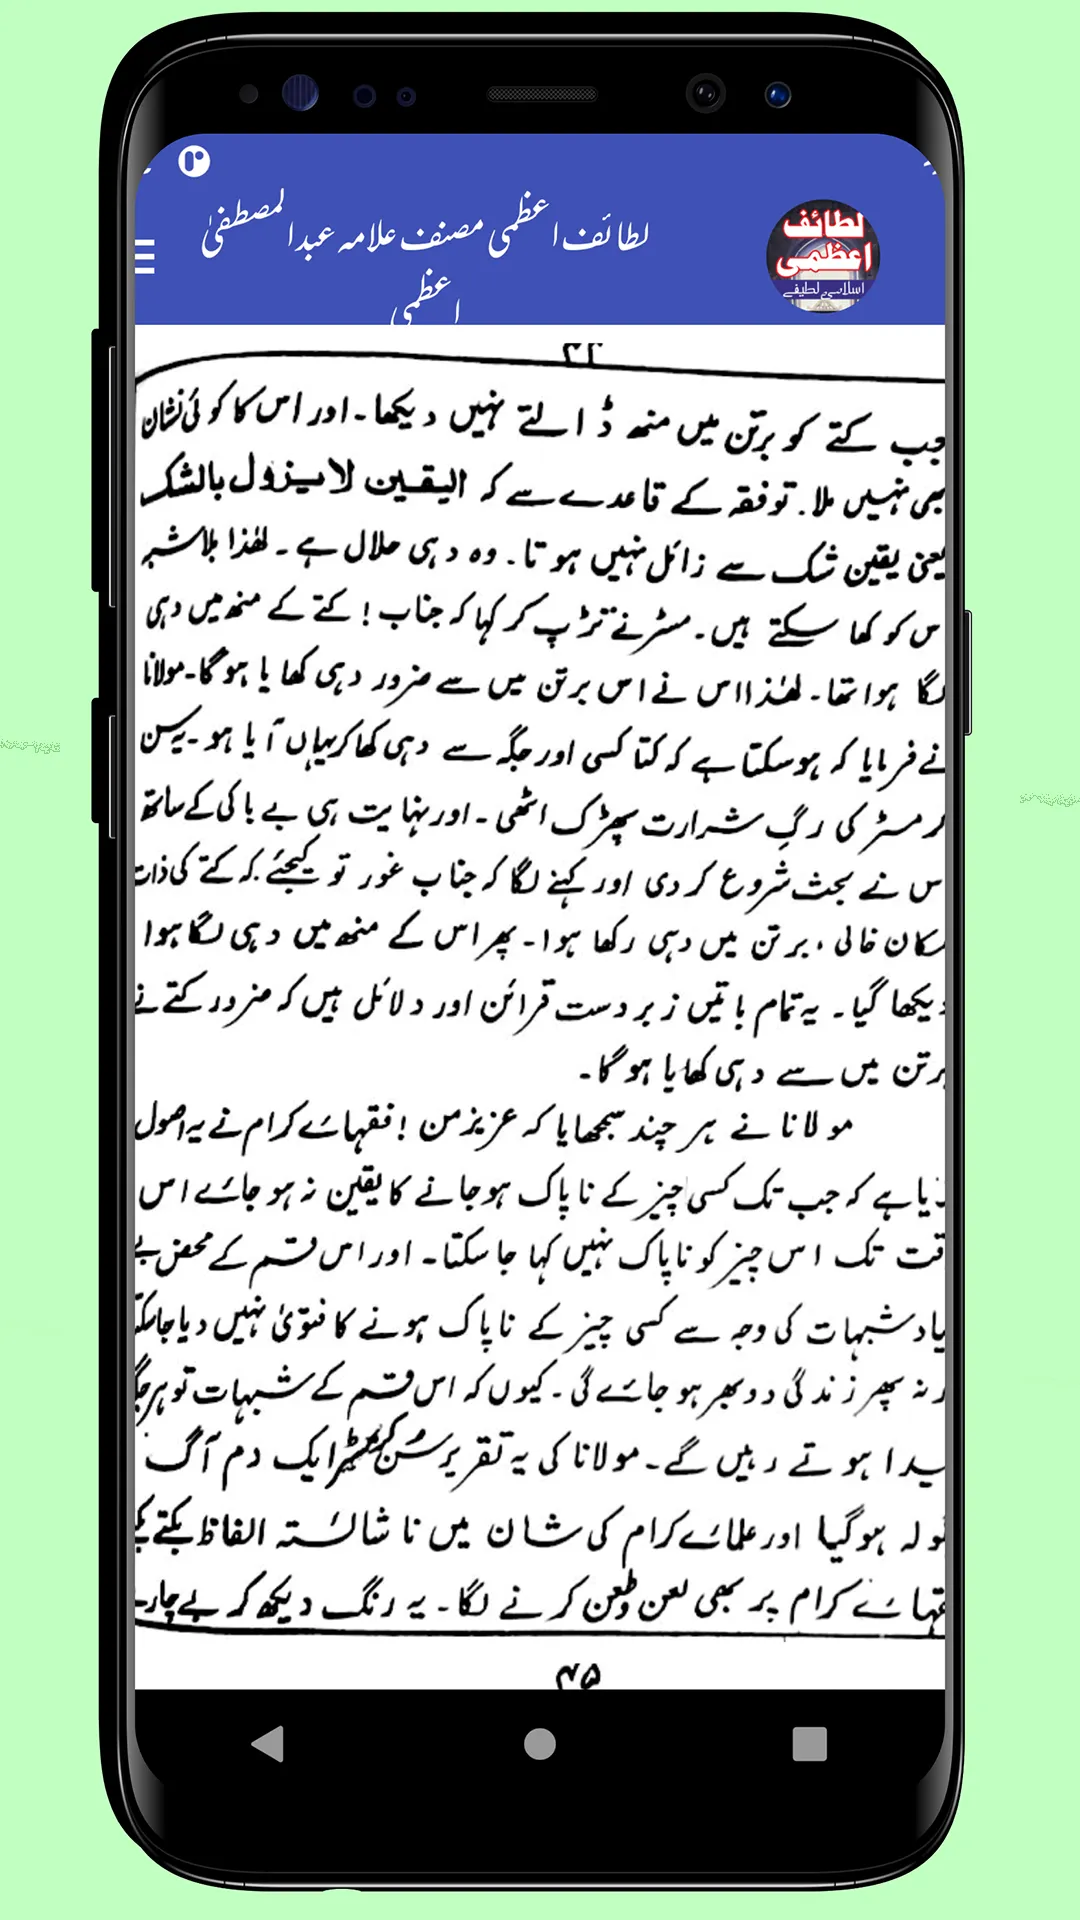 لطائف اعظمی مصنف علامہ عبدالمصطفیٰ
اعظمی
لطائف
اعظمی
اسلامی لطیفے
جب کتے کو برتن میں منھ ڈالتے نہیں دیکھا۔ اور اس کا کوئی نشان
بھی نہیں ملا۔ تو فقہ کے قاعدے سے کہ الیقین لا یزول بالشک
یعنی یقین شک سے زائل نہیں ہوتا۔ وہ دہی حلال ہے۔ لھٰذا بلا شبہ
س کو کھا سکتے ہیں۔ مسٹر نے تڑپ کر کہا کہ جناب! کتے کے منھ میں دہی
لگا ہوا تھا۔ لھٰذا اس نے اس برتن میں سے ضرور دہی کھایا ہوگا۔ مولانا
نے فرمایا کہ ہو سکتا ہے کہ کتا کسی اور جگہ سے دہی کھا کر یہاں آیا ہو۔ یہ سن
ر مسٹر کی رگِ شرارت پھڑک اٹھی۔ اور نہایت ہی بے باکی کے ساتھ
س نے بحث شروع کر دی اور کہنے لگا کہ جناب غور تو کیجئے کہ کتے کی ذات
مکان خالی، برتن میں دہی رکھا ہوا۔ پھر اس کے منھ میں دہی لگا ہوا
دیکھا گیا۔ یہ تمام باتیں زبردست قرائن اور دلائل ہیں کہ ضرور کتے نے
برتن میں سے دہی کھایا ہوگا۔
مولانا نے ہر چند سمجھایا کہ عزیز من! فقہائے کرام نے یہ اصول
یا ہے کہ جب تک کسی چیز کے ناپاک ہو جانے کا یقین نہ ہو جائے اس
قت تک اس چیز کو ناپاک نہیں کہا جا سکتا۔ اور اس قسم کے محض بے
یاد شبہات کی وجہ سے کسی چیز کے ناپاک ہونے کا فتویٰ نہیں دیا جا سکتا
ر نہ پھر زندگی دوبھر ہو جائے گی۔ کیوں کہ اس قسم کے شبہات تو ہر جگہ
پیدا ہوتے رہیں گے۔ مولانا کی یہ تقریر سن کر مسٹر ایک دم آگ
گولہ ہوگیا اور علمائے کرام کی شان میں ناشائستہ الفاظ بکتے بکتے
قہائے کرام پر بھی لعن وطعن کرنے لگا۔ یہ رنگ دیکھ کر بے چارے
۴۵